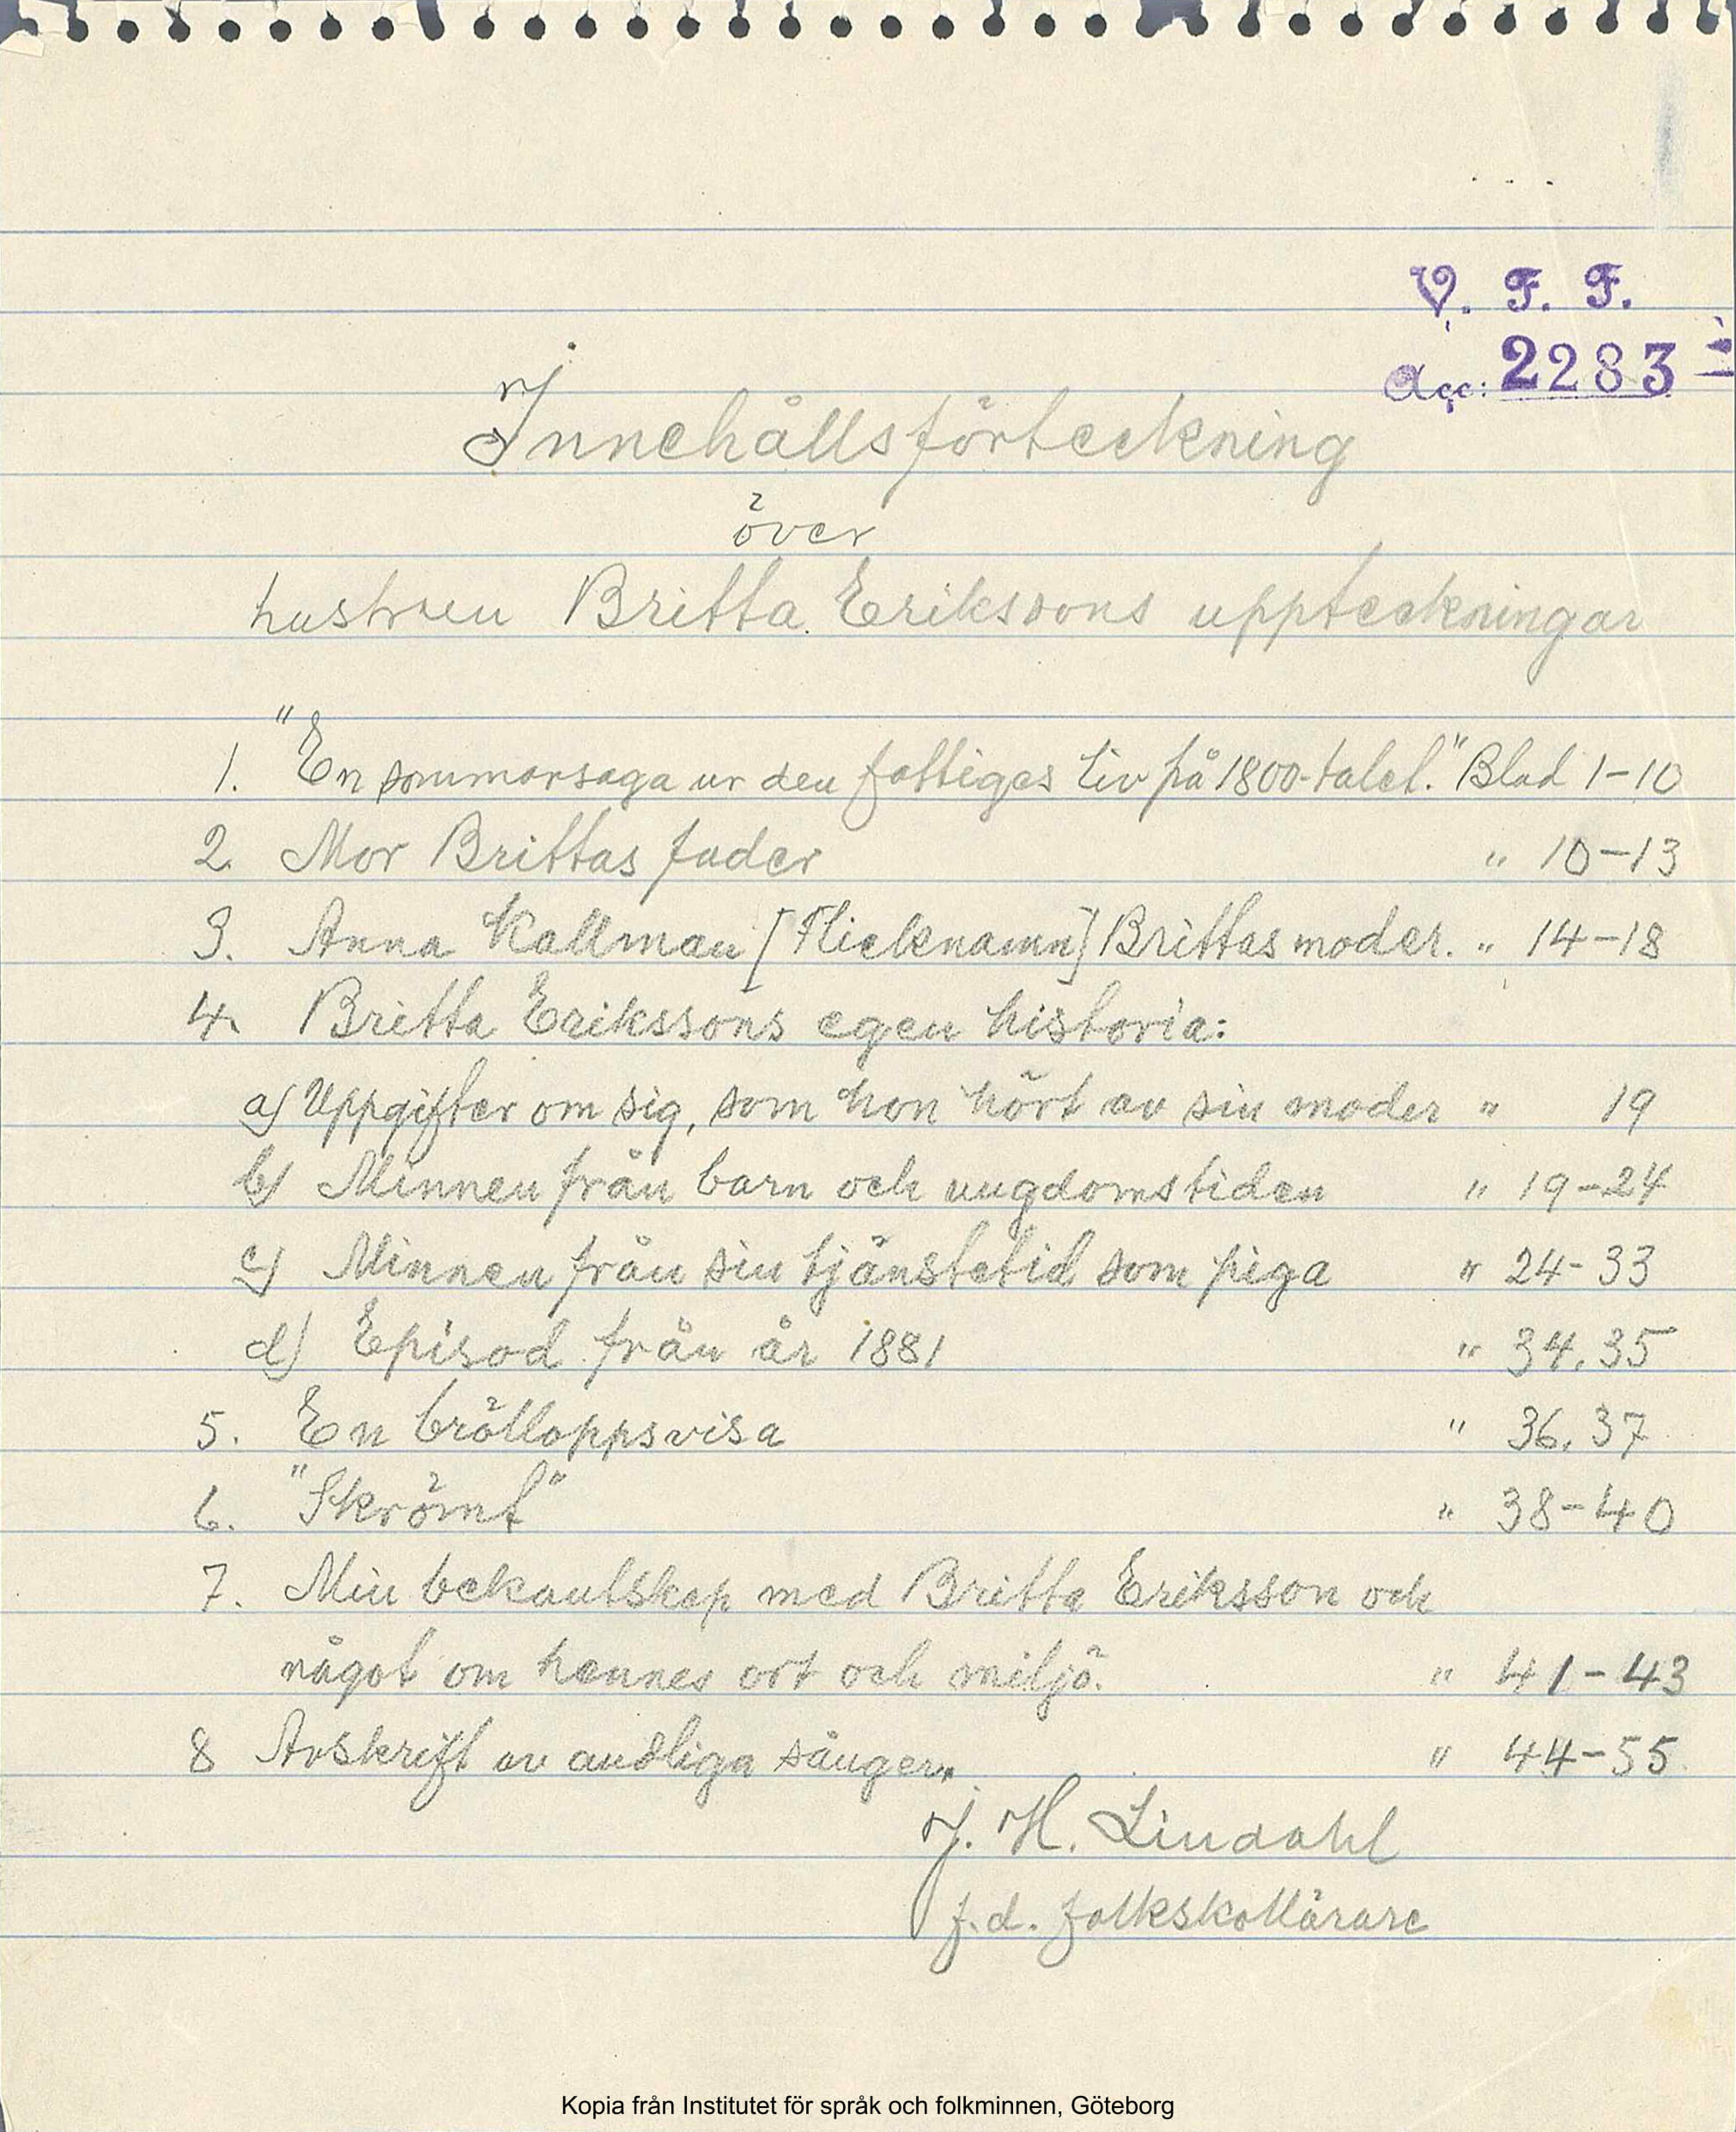 V. F. F.
Acc: 2283
Innehållsförteckning
över
hustrun Britta Erikssons uppteckningar
1. "En sommarsaga ur den fattiges liv på 1800-talet." Blad 1-10
2. Mor Brittas fader " 10-13
3. Anna Kallman [Flicknamn] Brittas moder. " 14-18
4. Britta Erikssons egen historia:
a) Uppgifter om sig, som hon hört av sin moder " 19
b) Minnen från barn och ungdomstiden " 19-24
c) Minnen från sin tjänstetid som piga " 24-33
d) Episod från år 1881 " 34, 35
5. En brölloppsvisa " 36, 37
6. "Skrömt" " 38-40
7. Min bekantskap med Britta Eriksson och
något om hennes ort och miljö. " 41-43
8 Avskrift av andliga sånger. " 44-55
J. H. Lindahl
f.d. folkskollärare
Kopia från Institutet för språk och folkminnen, Göteborg